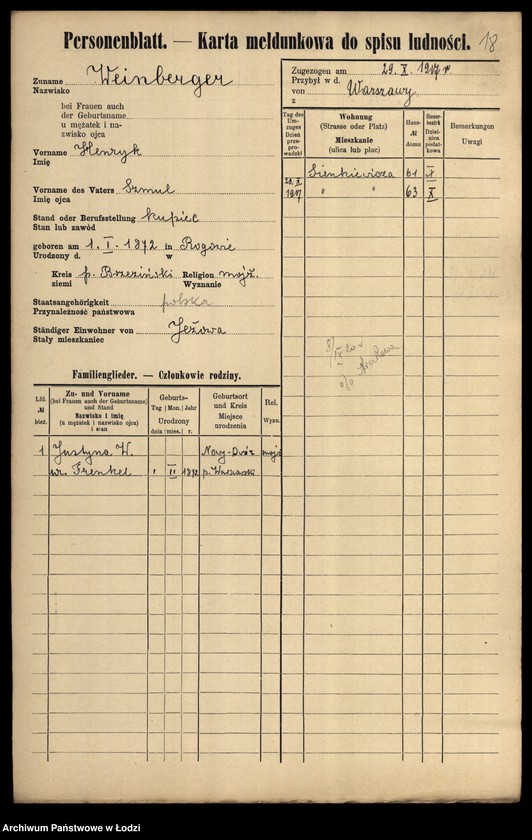 Personenblatt. — Karta meldunkowa do spisu ludności. 18
Zuname Weinberger
Nazwisko
bei Frauen auch
der Geburtsname
u mężatek i na-
zwisko ojca
Vorname Henryk
Imię
Vorname des Vaters Szmul
Imię ojca
Stand oder Berufsstellung kupiec
Stan lub zawód
geboren am 1. I. 1872 in Rogowie
Urodzony d. w
Kreis p. Brzeziński Religion mojż.
ziemi Wyznanie
Staatsangehörigkeit polska
Przynależność państwowa
Ständiger Einwohner von Jeżowa
Stały mieszkaniec
Zugezogen am 29. X. 1917 r.
Przybył w d.
von Warszawy
z
Tag des Um-zuges Dzień prze-prowadzki
Wohnung
(Strasse oder Platz)
Mieszkanie
(ulica lub plac)
Haus-
№
domu
Steer-bezirk Dziel-nica podat-kowa
Bemerkungen
Uwagi
Sienkiewicza 61 X
29. X
1917 " " 63 X
8/IX 20
Familienglieder. — Członkowie rodziny.
Lfd.
№
bież.
Zu- und Vorname
(bei Frauen auch der Geburtsname)
und Stand
Nazwisko i imię
(u mężatek i nazwisko ojca)
i stan
Geburts-
Tag Mon. Jahr
Urodzony
dnia mies. r.
Geburtsort
und Kreis
Miejsce
urodzenia
Rel.
Wyzn.
1 Justyna W. Nowy-Dwór mojż
ur. Frenkel 1 II 1892 p. Warszawski
Archiwum Państwowe w Łodzi